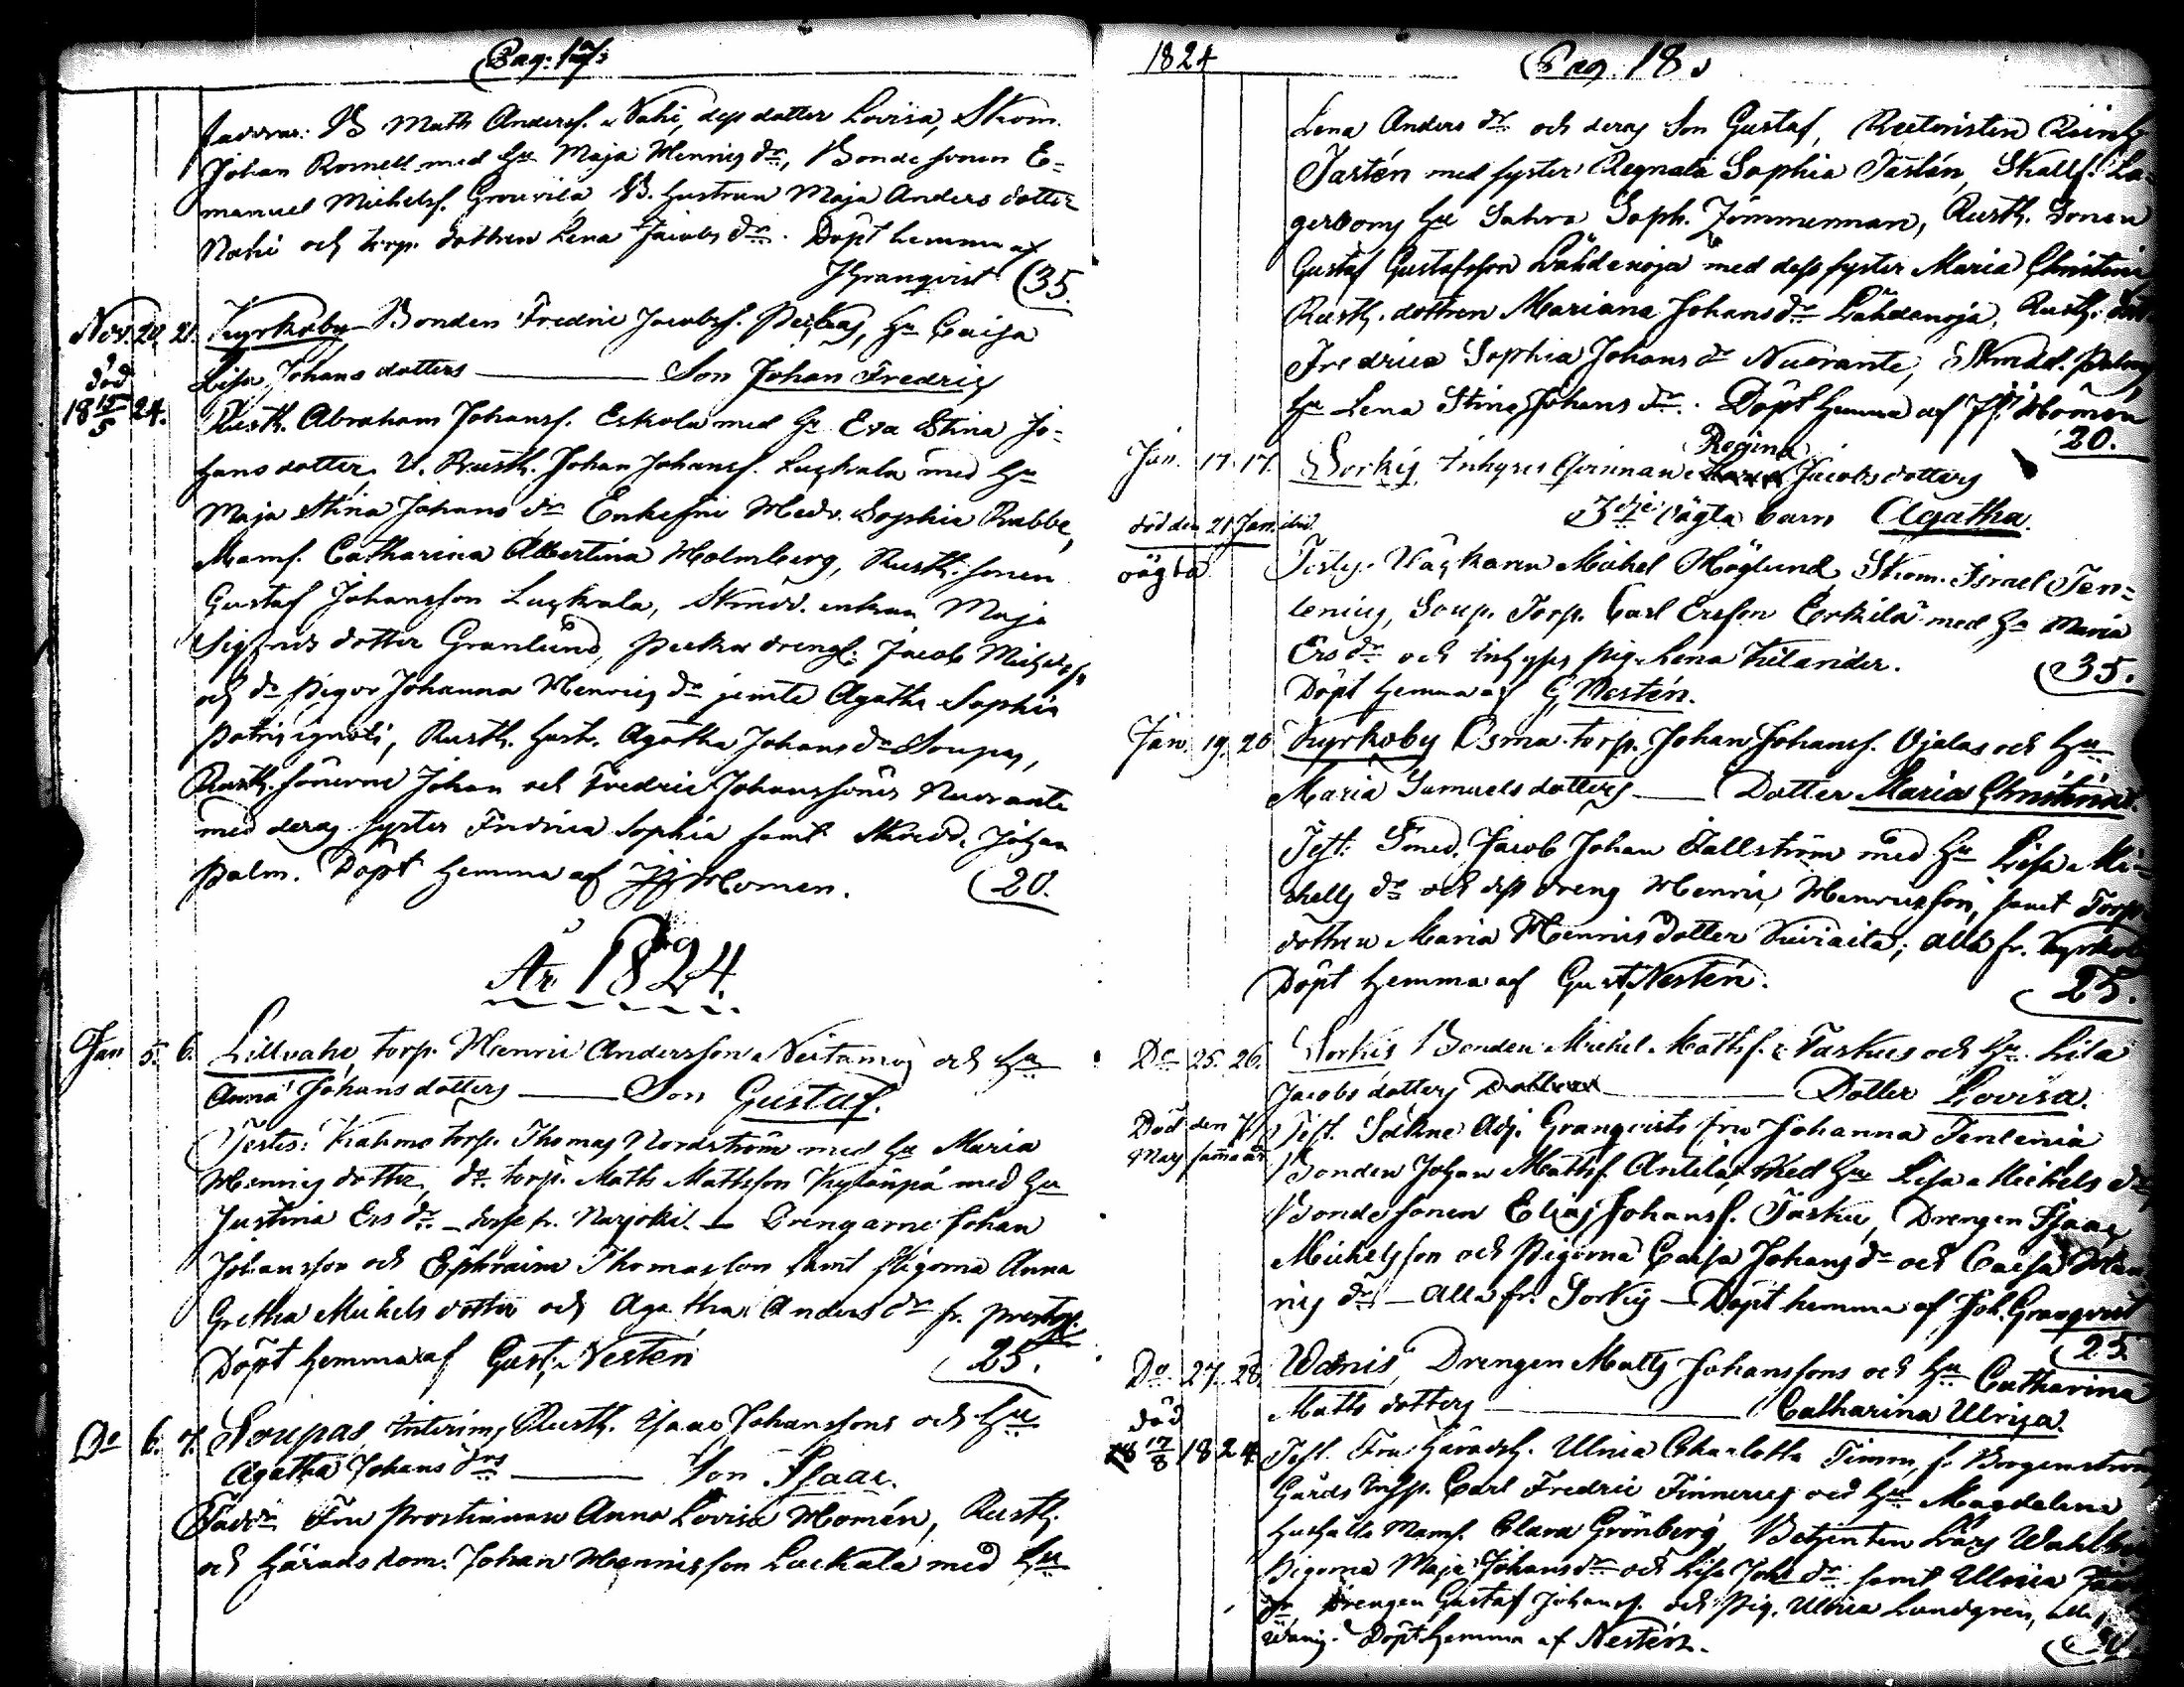 Pag: 17:
Faddrar: B Math Andersf. Nahi, dess dotter Lovisa, Skom.
Johan Romell med Hu Maja Henrics dr, Bonde sonen E=
manuel Michelsf. Grouvila B. hustrun Maja Anders dotter
Nahi och torp. dottren Lena Jacobs dr. Döpt hemma af
JGranqvist (35.
Nov. 20. 21. Kyrkoby Bonden Fredric Jacobsf. Peckas, Hu Caisa
död Lisa Johans dotters — Son Johan Fredric
18 15/5 24. Rusth. Abraham Johansf. Eskola med Hu Eva Stina Jo=
hans dotter, V. Rusth. Johan Johansf. Luckala med Hu
Maja Stina Johans dr Enkefru Medv. Sophia Rabbe,
Mamf. Catharina Albertina Holmberg, Rusth. sonen
Gustaf Johansson Luckala, Skrädd. enkan Maja
Sigfrids dotter Granlund, Pecka drengf. Jacob Michelsf.
och do Pigor Johanna Henrics dr jemte Agatha Sophia
Patris ignoti, Rusth. hustr. Agatha Johans dr Soupas,
Rusth. sönerne Johan och Fredric Johanssöner Nuorante
med deras syster Fredrica Sophia samt Skrädd. Johan
Palm. Döpt hemma af JJ Homen. (20.
År 1824.
Jan 5. 6. Lillnahi, torp. Henric Andersson Neitamo och Hu
Anna Johans dotters — Son Gustaf.
Testes: torp. Thomas Nordström med Hu Maria
Henrics dotter, do torp. Matts Mattsson Kylänpä med Hu
Justina Ers dr — fr. Narjoki — Drengarne Johan
Johansson och Ephraim Thomasson samt Pigorna Anna
Gretha Michels dotter och Agatha Anders dr fr. Prestg.
Döpt hemma af Gust. Nestén 25.
Do 6. 7. Soupas Interims Rusth. Isaac Johanssons och Hu
Agatha Johans drs — Son Isaac.
Faddr Fru Prostinnan Anna Lovisa Homén, Rusth.
och Härads dom. Johan Henricsson Luckala med Hu
1824 Pag. 18.
Lena Anders dr och deras Son Gustaf,
Tastén med syster Regnata Sophia Tastén, Skallf. La=
gerbom Hu Soph. Zimmerman, Rusth. Sonen
Gustaf Gustafsson Lähdenoja med dess syster Maria Christina
Rusth. dottren Mariana Johans dr Lähdenoja, Rusth.
Fredrica Sophia Johans dr Nuorante, Skrädd. Palms
Hu Lena Stina Johans dr. Döpt hemma af JJ Homén
20.
Jan. 17. 17. Sorkis Inhyses qvinnan Regina Jacobs dotters
3dje oägta barn Agatha.
död den 21 Jan. ibid.
oägta Testes. Michel Höglund, Skom. Israel Ten=
lenius, Soup. Torp. Carl Ersson Erkilä med Hu Maria
Ers dr och Inhyses pig. Lena Kilander. (35.
Döpt hemma af G Nestén.
Jan. 19. 20 Kyrkoby Osma torp. Johan Johansf. Ojalas och Hu
Maria Samuels dotters — Dotter Maria Christina.
Test: Smed. Jacob Johan Tallström med Hu Lisa Mi=
chells dr och dess dreng Henric Henricsson, samt Torp
dottren Maria Henrics dotter; alla fr. Kyrkob
Döpt hemma af Gust. Nestén. 25.
Do 25. 26. Sorkis Bonden Michel Mathsf. Taskus och Hu Lisa
Jacobs dotters — Dotter Lovisa.
Död den 7/ Test. Sockne Adj. Granqvists fru Johanna Tenlenia
May samma år Bonden Johan Mathsf. Antila med Hu Lisa Michels dr,
Bondesonen Elias Johansf. Taskus, Drengen Isaac
Michelsson och Pigorna Caisa Johans dr och Caisa Hen
rics dr — alla fr. Sorkis — Döpt hemma af Joh. Granqvist
25
Do 27. 28. Wanis, Drengen Matts Johanssons och Hu Catharina
Matts dotters — Catharina Ulrica.
död
18 17/8 1824. Test. Fru Häradsh. Ulrica Charlotta Timm, f. Borgenström
Gårds Insp. Carl Fredric Finnerus och Hu Magdalena
Hushålls Mamf. Clara Grönberg, Betjenten Lars
Pigorna Maja Johans dr och Lisa Joh dr samt Ulrica
Drengen Gustaf Johansf. och Pig. Ulrica Lundgren, alla
Wanis. Döpt hemma af Nestén.